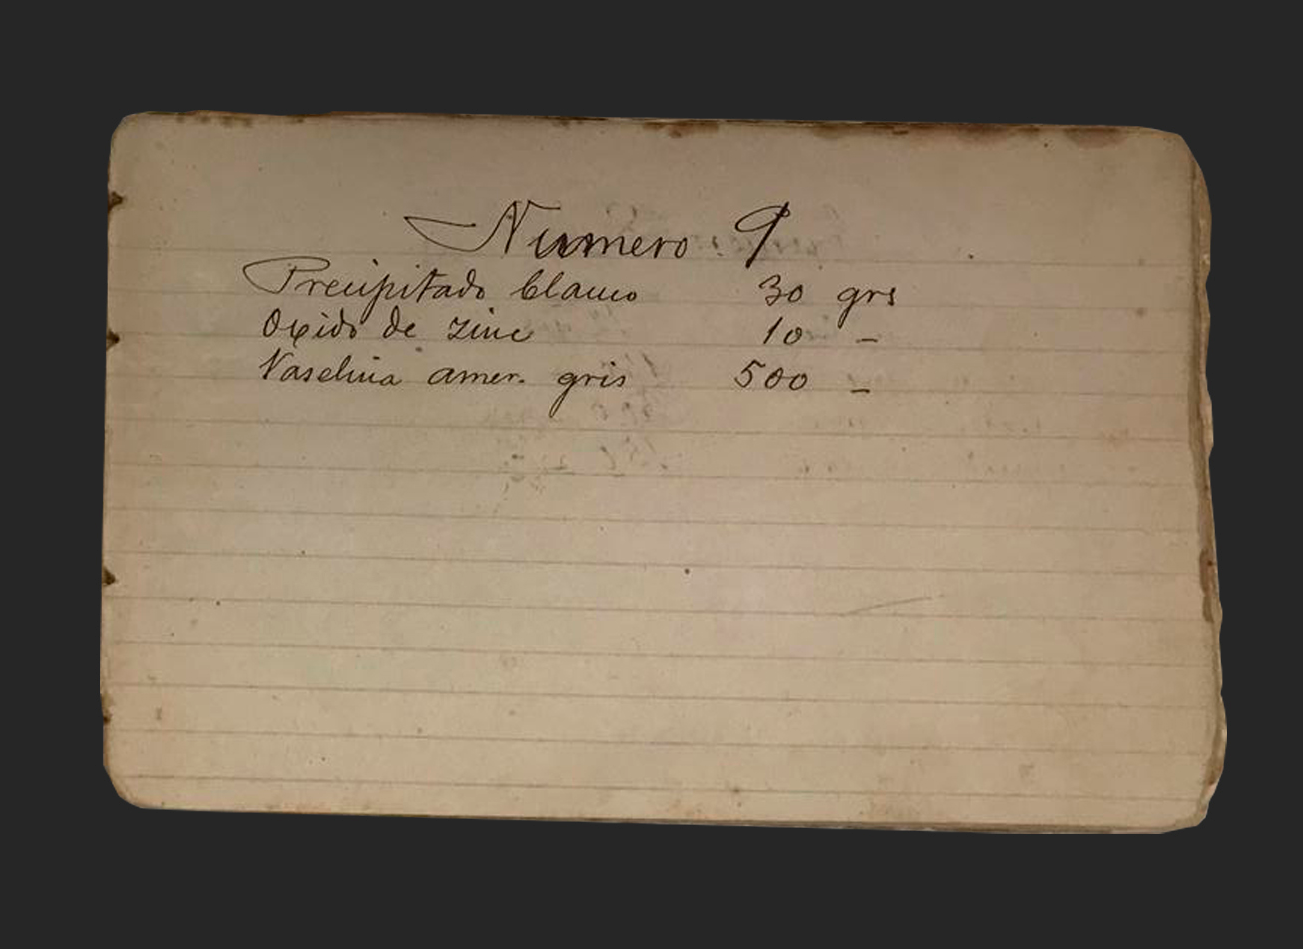 Numero 9
Precipitado blanco 30 grs
Oxido de zinc 10 –
Vaselina amer. gris 500 –